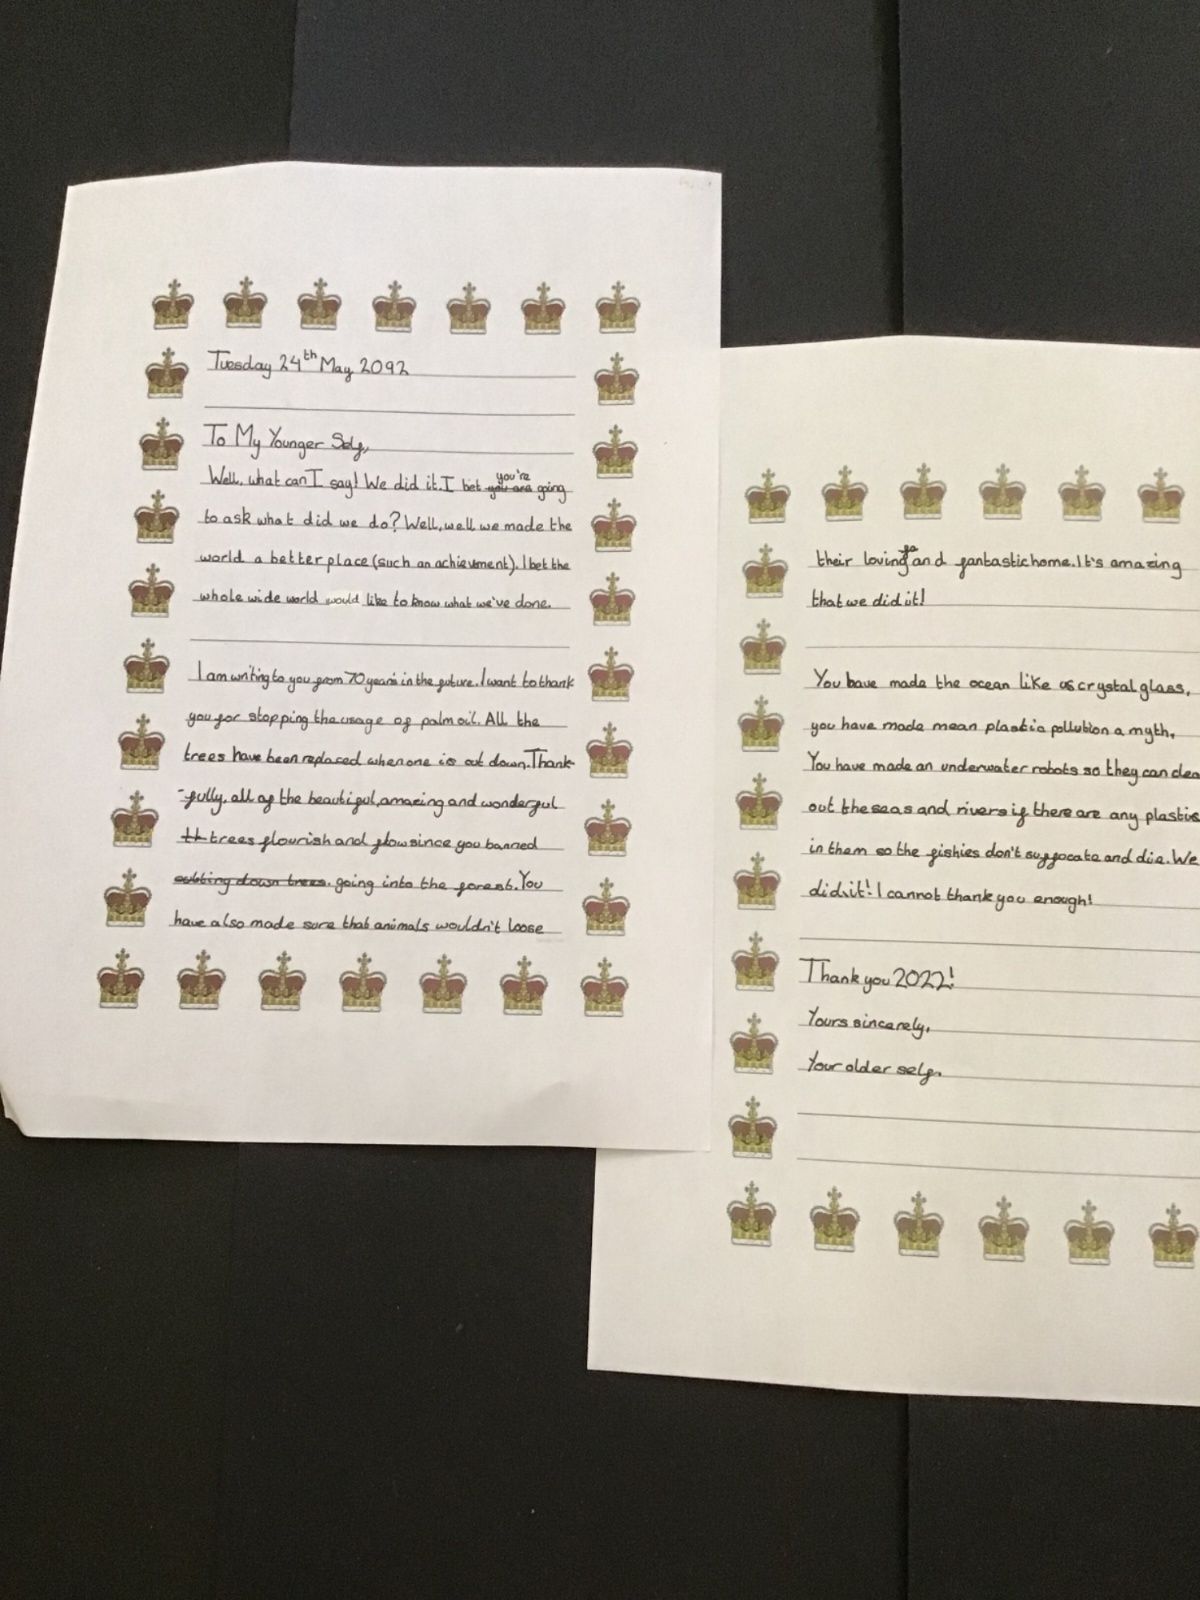 Tuesday 24th May 2092
To My Younger Self,
Well, what can I say! We did it. I bet you're going
to ask what did we do? Well, well we made the
world a better place (such an achievment). I bet the
whole wide world would like to know what we've done.
I am writing to you from 70 years in the future. I want to thank
you for stopping the usage of palm oil. All the
trees have been replaced when one is cut down. Thank-
-fully, all of the beautiful, amazing and wonderful
trees flourish and flow since you banned
cutting down trees. going into the forest. You
have also made sure that animals wouldn't loose
their loving and fantastic home. It's amazing
that we did it!
You have made the ocean like as crystal glass,
you have made mean plastic pollution a myth,
You have made an underwater robots so they can clea
out the seas and rivers if there are any plastics
in them so the fishies don't suffocate and die. We
did it! I cannot thank you enough!
Thank you 2022!
Yours sincerely,
Your older self.